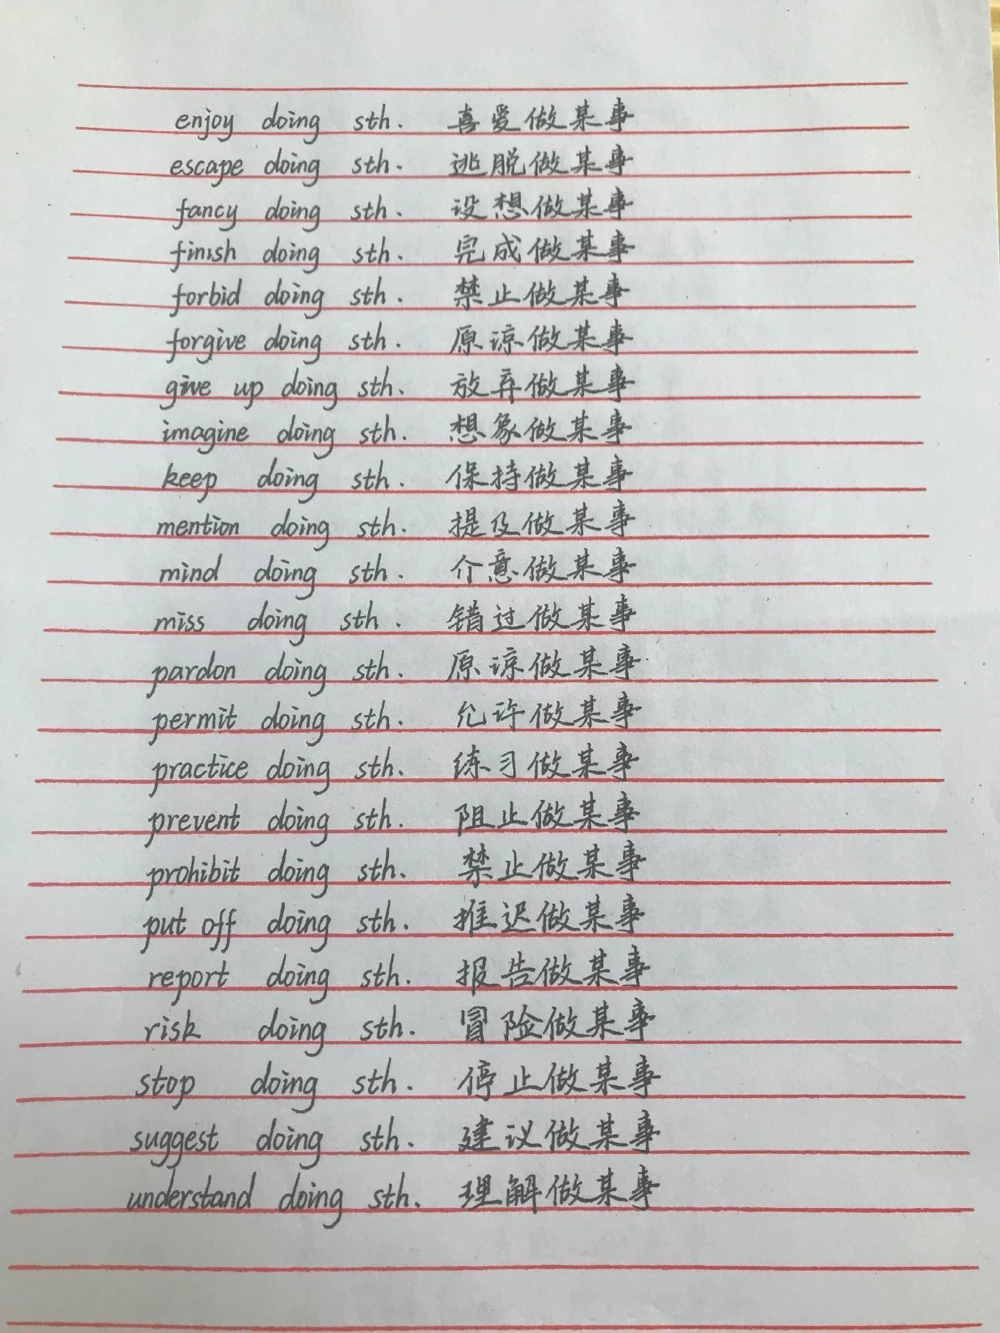 enjoy doing sth. 喜爱做某事
escape doing sth. 逃脱做某事
fancy doing sth. 设想做某事
finish doing sth. 完成做某事
forbid doing sth. 禁止做某事
forgive doing sth. 原谅做某事
give up doing sth. 放弃做某事
imagine doing sth. 想象做某事
keep doing sth. 保持做某事
mention doing sth. 提及做某事
mind doing sth. 介意做某事
miss doing sth. 错过做某事
pardon doing sth. 原谅做某事
permit doing sth. 允许做某事
practice doing sth. 练习做某事
prevent doing sth. 阻止做某事
prohibit doing sth. 禁止做某事
put off doing sth. 推迟做某事
report doing sth. 报告做某事
risk doing sth. 冒险做某事
stop doing sth. 停止做某事
suggest doing sth. 建议做某事
understand doing sth. 理解做某事